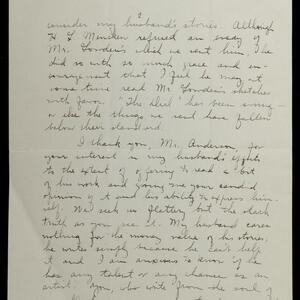 2
consider my husband's stories. Although
H L Mencken refused an essay of
Mr. Lowdin's which we sent him, he
did so with so much grace and en-
couragement that I feel he may at
some time read Mr. Lowdin's sketches
with favor. "The Dial" has been
or else the things we send have fallen
below their standard.
I thank you, Mr. Anderson, for
your interest in my husband's efforts
to the extent of offering to read a bit
of his work and giving me your candid
opinion of it and his ability to express him
self. We seek no flattery but the stark
truth as you see it. My husband cares
nothing for the money value of his stories,
he writes simply because he can't help
it and I am anxious to know if he
has any talent or any chance as an
artist. You, who write from the soul of